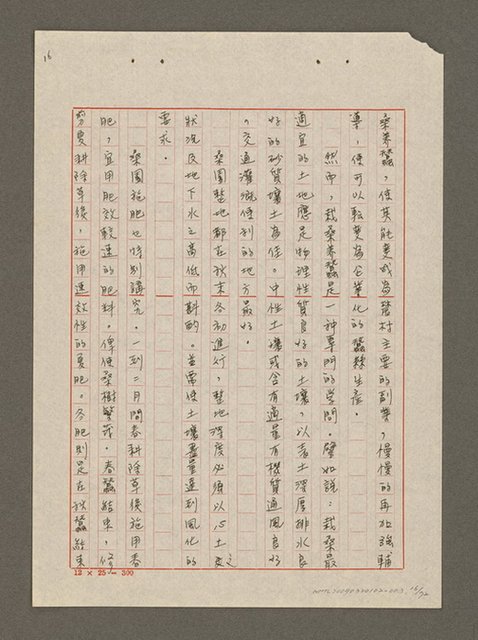 桑養蠶，使其能變成為農村主要的副業，慢慢的再加強輔
導，便可以轉變為企業化的蠶絲生產。
然而，栽桑養蠶是一種專門的學問。譬如說：栽桑最
適宜的土地應是物理性質良好的土壤，以表土深厚排水良
好的砂質壤土為佳。中性土壤或含有適量有機質通風良好
。交通灌溉便利的地方最好。
桑園整地都在秋末冬初進行，整地深度必須以心土
狀況及地下水之高低而斟酌。並需使土壤盡量達到風化的
要求。
桑園施肥也特別講究。一到二月間春耕除草後施用春
肥，宜用肥效較速的肥料。俾使桑樹繁茂。春蠶結束，修
剪夏耕除草後，施用速效性的夏肥。冬肥則是在秋蠶結束
16
12 × 25 = 300
16/72